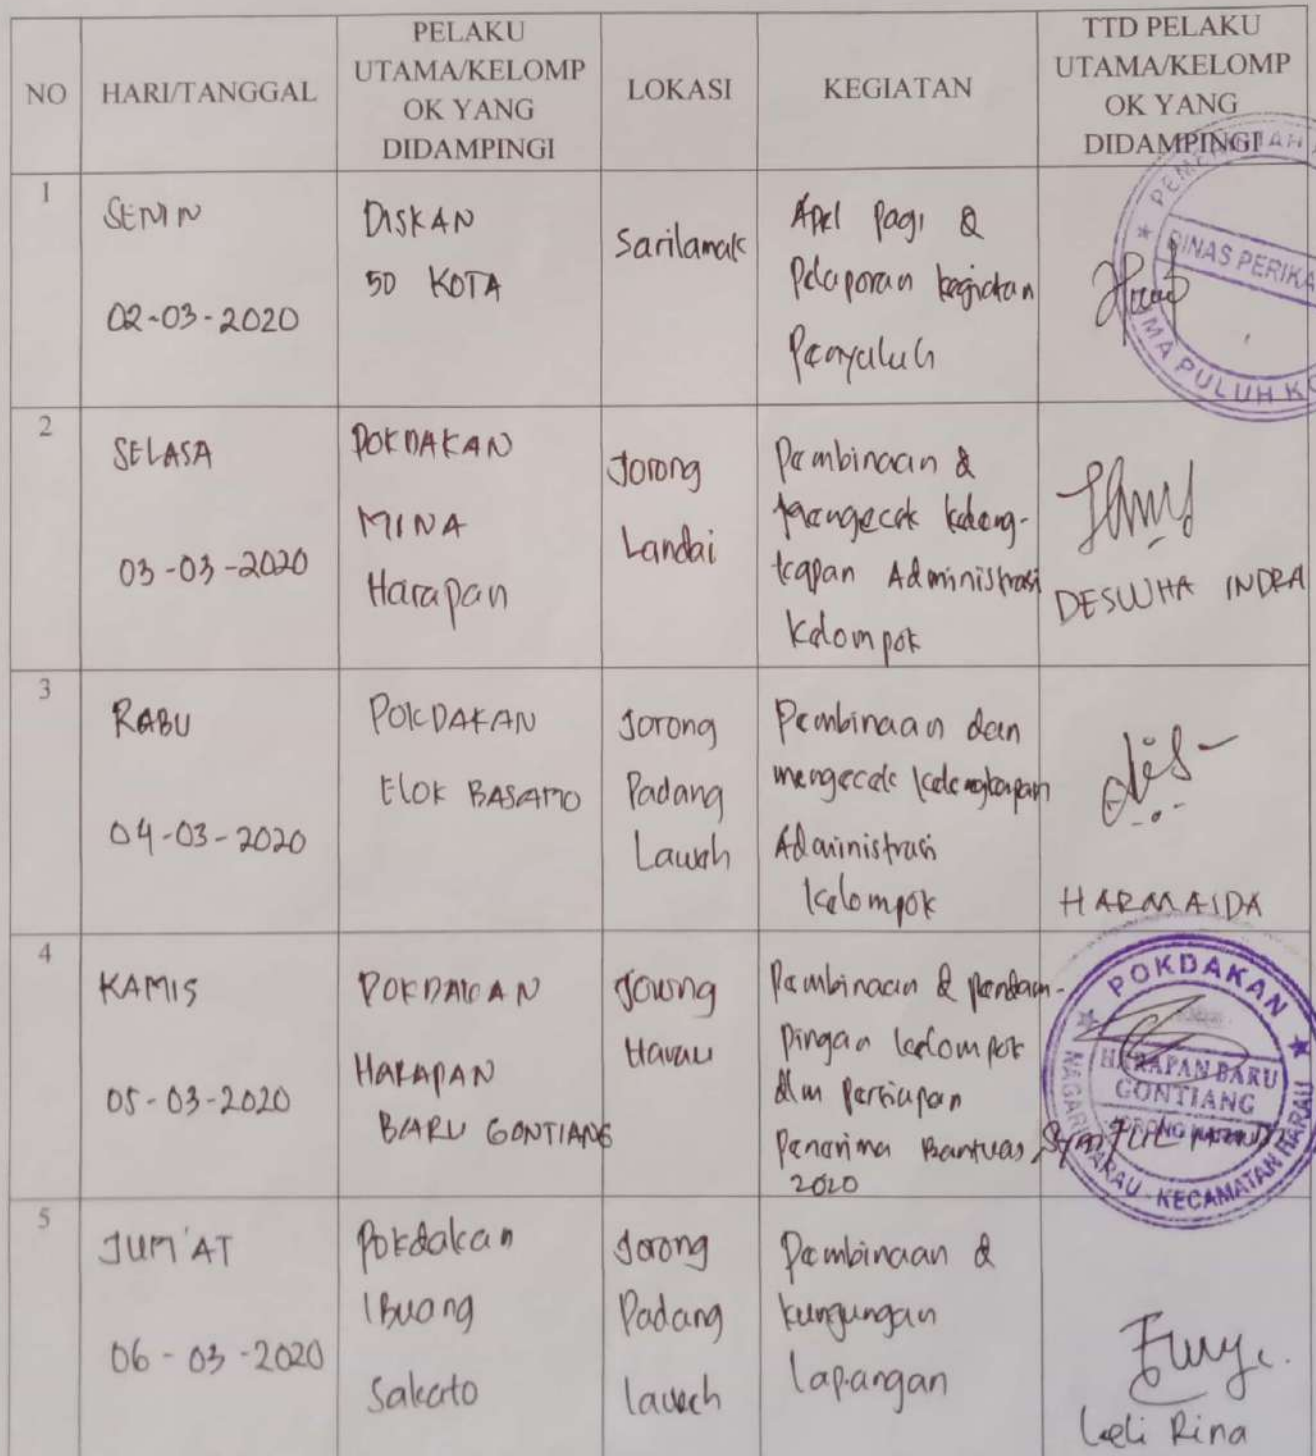 NO
HARI/TANGGAL
PELAKU
UTAMA/KELOMP
OK YANG
DIDAMPINGI
LOKASI
KEGIATAN
TTD PELAKU
UTAMA/KELOMP
OK YANG
DIDAMPINGI
1
SENIN
02-03-2020
DISKAN
50 KOTA
Sarilamak
Apel pagi &
Pelaporan kegiatan
Penyuluh
DINAS PERIKA
MA PULUH KO
2
SELASA
03-03-2020
POKDAKAN
MINA
Harapan
Jorong
Landai
Pembinaan &
Mengecek keleng-
kapan Administrasi
Kelompok
INDRA
3
RABU
04-03-2020
POKDAKAN
ELOK BASAMO
Jorong
Padang
Lauah
Pembinaan dan
mengecek kelengkapan
Administrasi
kelompok
HARMAIDA
4
KAMIS
05-03-2020
POKDAKAN
HARAPAN
BARU GONTIANG
Jorong
Harau
Pembinaan & pendam-
pingan kelompok
dlm persiapan
Penerima Bantuan
2020
POKDAKAN
HARAPAN BARU
GONTIANG
JORONG HARAU
NAGARI HARAU - KECAMATAN HARAU
5
JUM'AT
06-03-2020
Pokdakan
IBuang
Sakato
Jorong
Padang
Lauah
Pembinaan &
kungungan
lapangan
Leli Rina